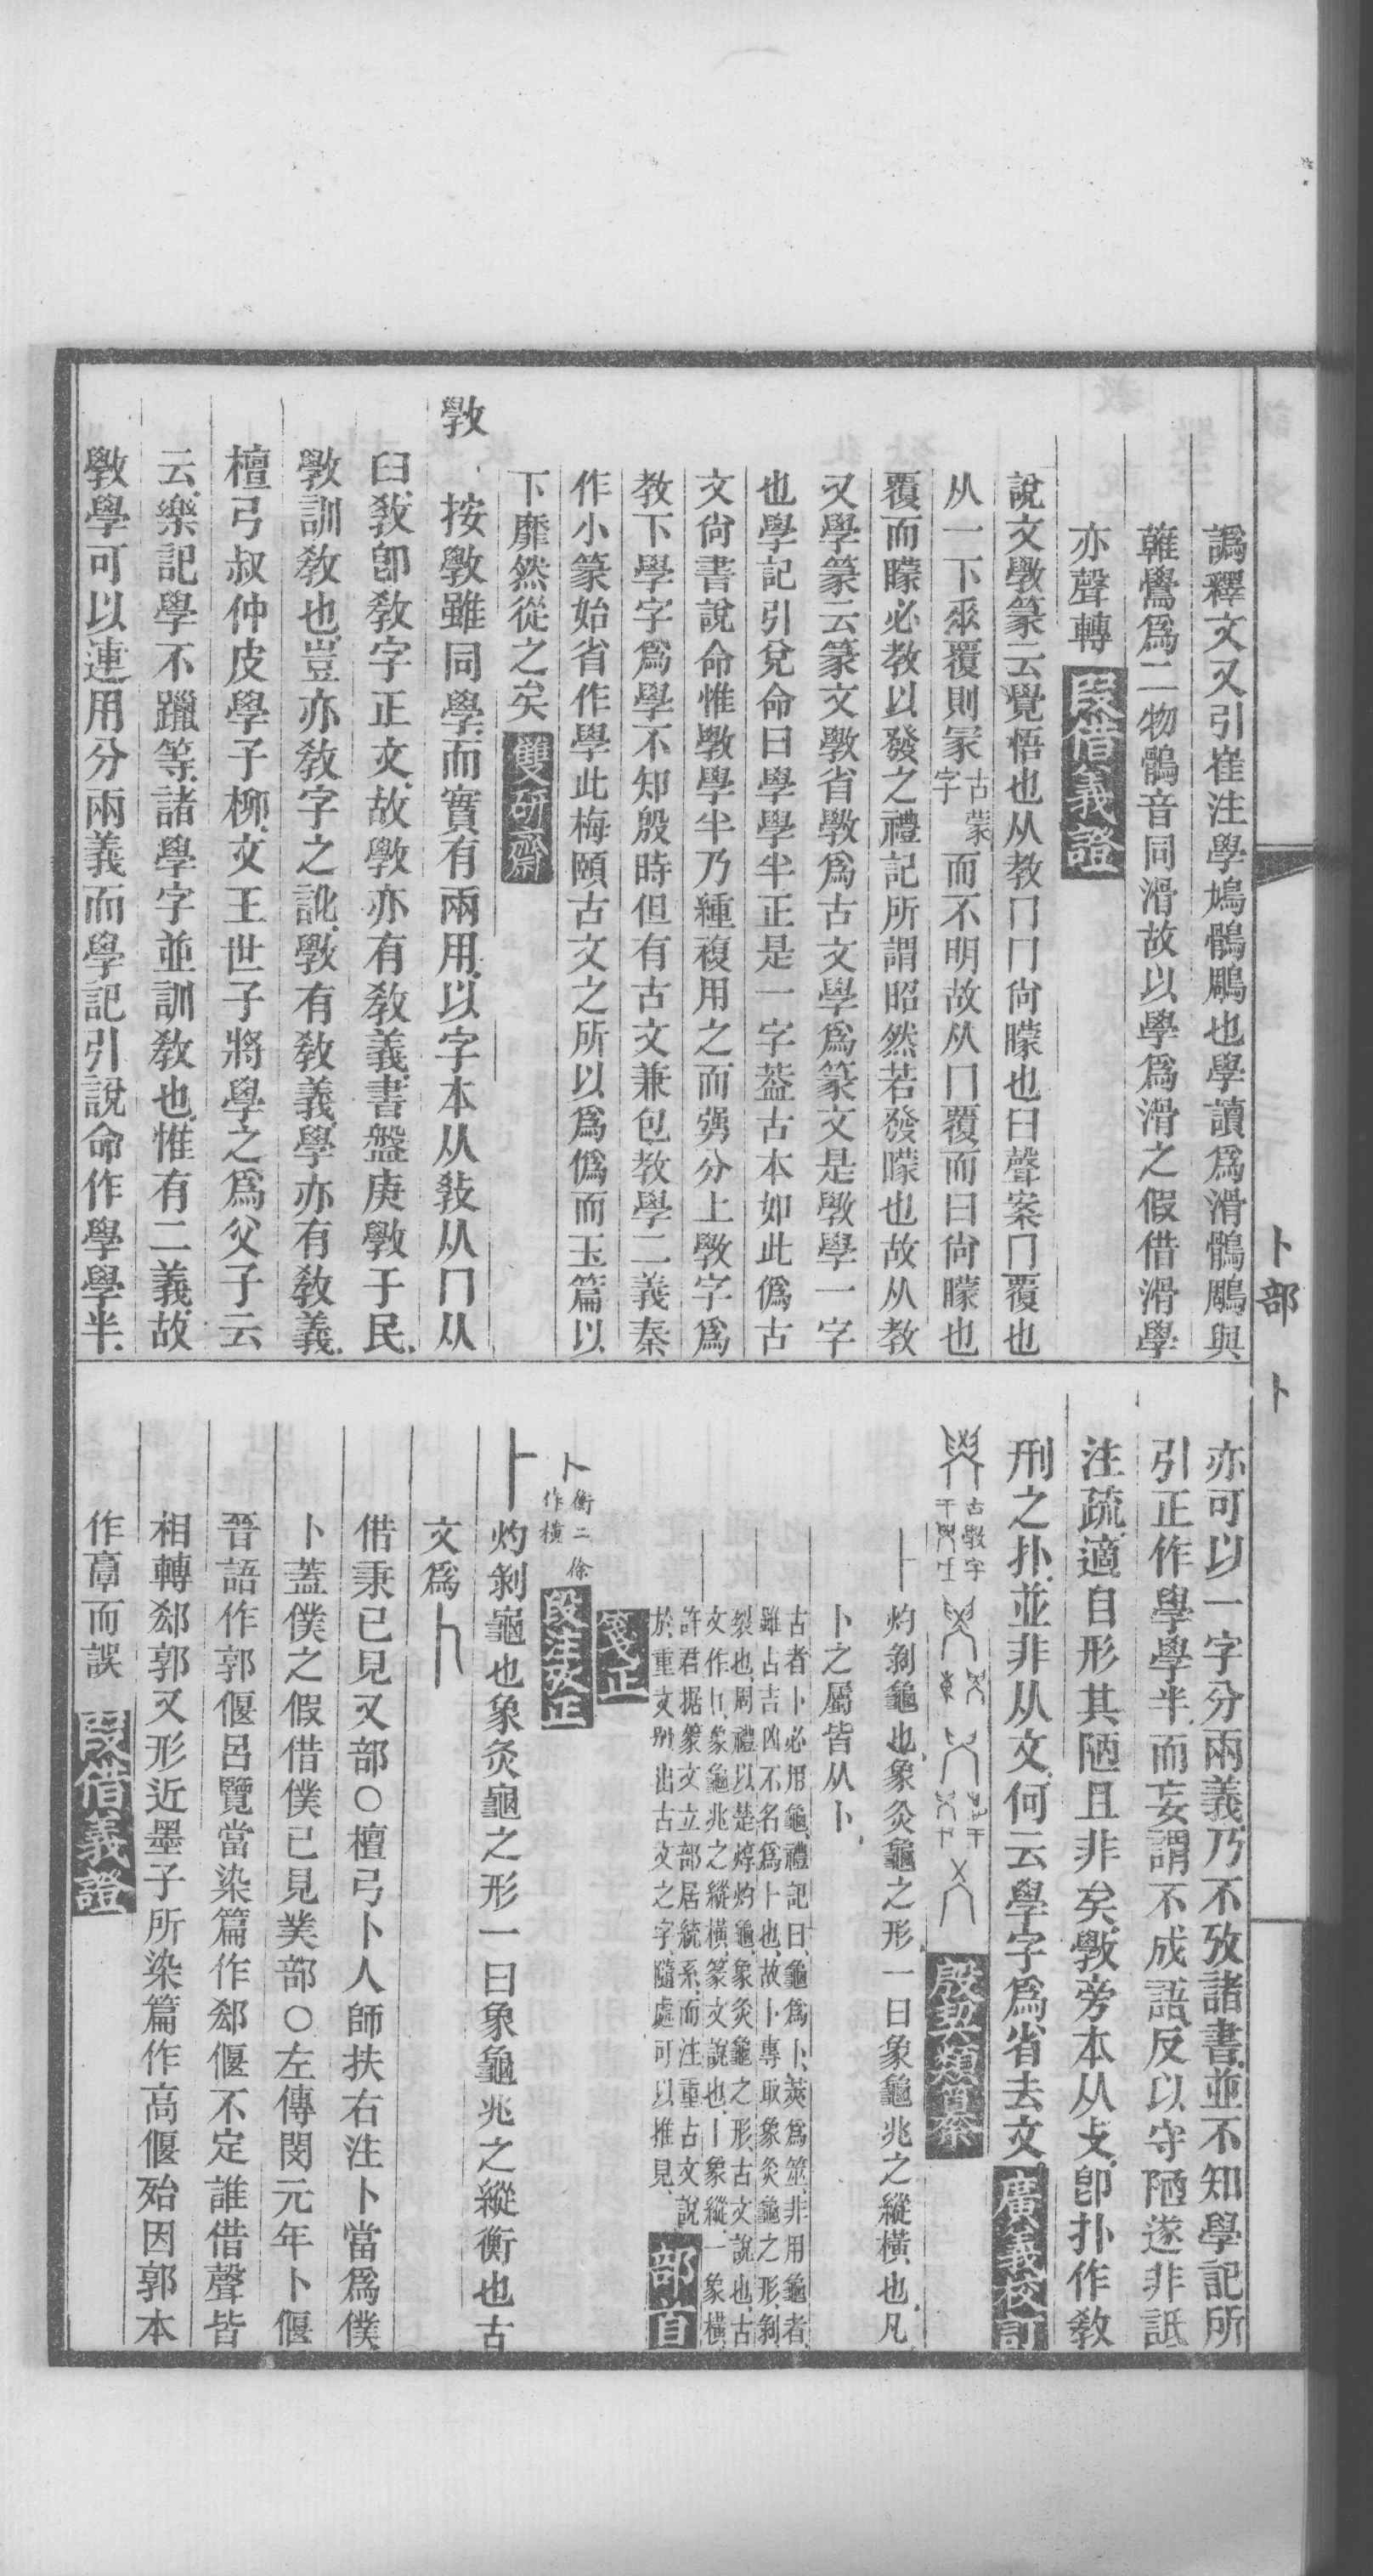 卜部　卜
譌釋文又引崔注學鳩鶻鵰也學讀爲滑鶻鵰與
雗鷽爲二物鶻音同滑故以學爲滑之假借滑學
亦聲轉 叚借義證
說文斆篆云覺悟也从教冂冂尙矇也臼聲案冂覆也
从一下𠂹覆則冡古蒙字而不明故从冂覆而曰尙矇也
覆而矇必教以發之禮記所謂昭然若發矇也故从教
又學篆云篆文斆省斆爲古文學爲篆文是斆學一字
也學記引兌命曰學學半正是一字葢古本如此僞古
文尙書說命惟斆學半乃緟複用之而強分上斆字爲
教下學字爲學不知殷時但有古文兼包教學二義秦
作小篆始省作學此梅頤古文之所以爲僞而玉篇以
下靡然從之矣 雙研齋
斆 按斆雖同學而實有兩用以字本从敎从冂从
臼敎卽敎字正文故斆亦有敎義書盤庚斆于民
斆訓敎也豈亦敎字之訛斆有敎義學亦有敎義
檀弓叔仲皮學子柳文王世子將學之爲父子云
云樂記學不躐等諸學字並訓敎也惟有二義故
斆學可以連用分兩義而學記引說命作學學半
亦可以一字分兩義乃不攷諸書並不知學記所
引正作學學半而妄謂不成語反以守陋遂非詆
注疏適自形其陋且非矣斆旁本从攴卽扑作敎
刑之扑並非从文何云學字爲省去文 廣義校訂
古斆字 殷契類纂
卜 灼剝龜也象灸龜之形一曰象龜兆之縱橫也凡
卜之屬皆从卜
古者卜必用龜禮記曰龜爲卜筴爲筮非用龜者
雖占吉凶不名爲卜也故卜專取象灸龜之形剝
裂也周禮以楚焞灼龜象灸龜之形古文說也古
文作卜象龜兆之縱橫篆文說也丨象縱一象橫
許君据篆文立部居統系而注重古文說
於重文別出古文之字隨處可以推見 部首
箋正
卜 衡二徐作橫 段注攷正
卜 灼剝龜也象灸龜之形一曰象龜兆之縱衡也古
文爲卜
借秉已見又部○檀弓卜人師扶右注卜當爲僕
卜蓋僕之假借僕已見菐部○左傳閔元年卜偃
晉語作郭偃呂覽當染篇作郄偃不定誰借聲皆
相轉郄郭又形近墨子所染篇作高偃殆因郭本
作𩫏而誤 叚借義證